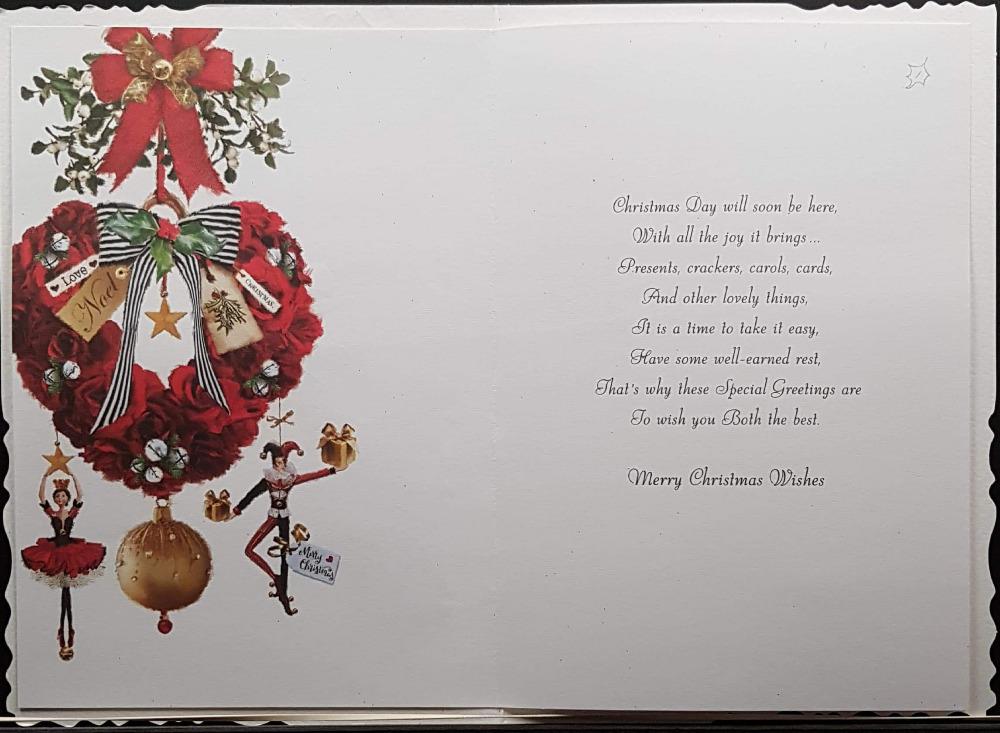 LOVE
Noel
CHRISTMAS
Merry
Christmas
Christmas Day will soon be here,
With all the joy it brings...
Presents, crackers, carols, cards,
And other lovely things,
It is a time to take it easy,
Have some well-earned rest,
That's why these Special Greetings are
To wish you Both the best.
Merry Christmas Wishes